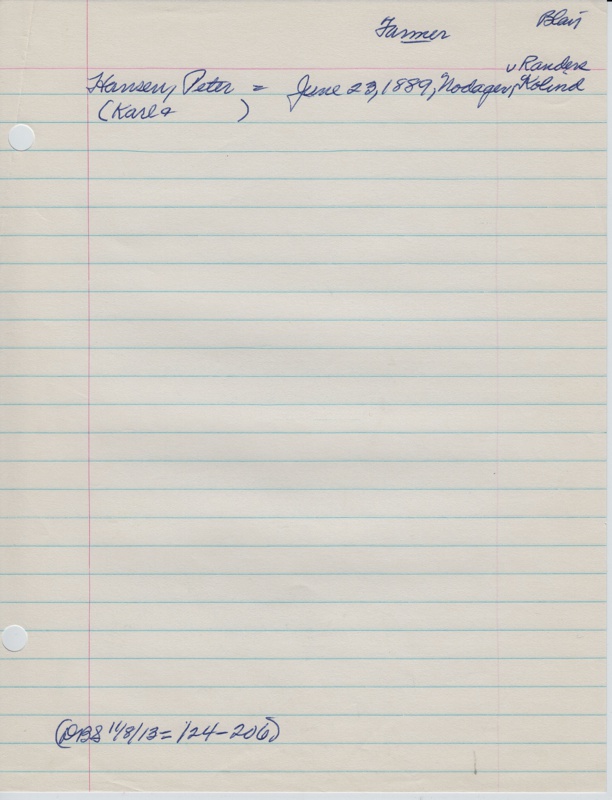 Blair
Farmer
Hansen, Peter = June 23, 1889, Nodager, v Randers Kolind
(Karl & )
(DBS 11/8/13 = 124-206)